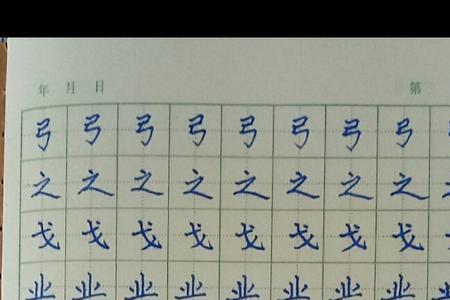 年 月 日 第
弓 弓 弓 弓 弓 弓 弓 弓
之 之 之 之 之 之 之 之 之
戈 戈 戈 戈 戈 戈 戈 戈
业 业 业 业 业 业 业 业